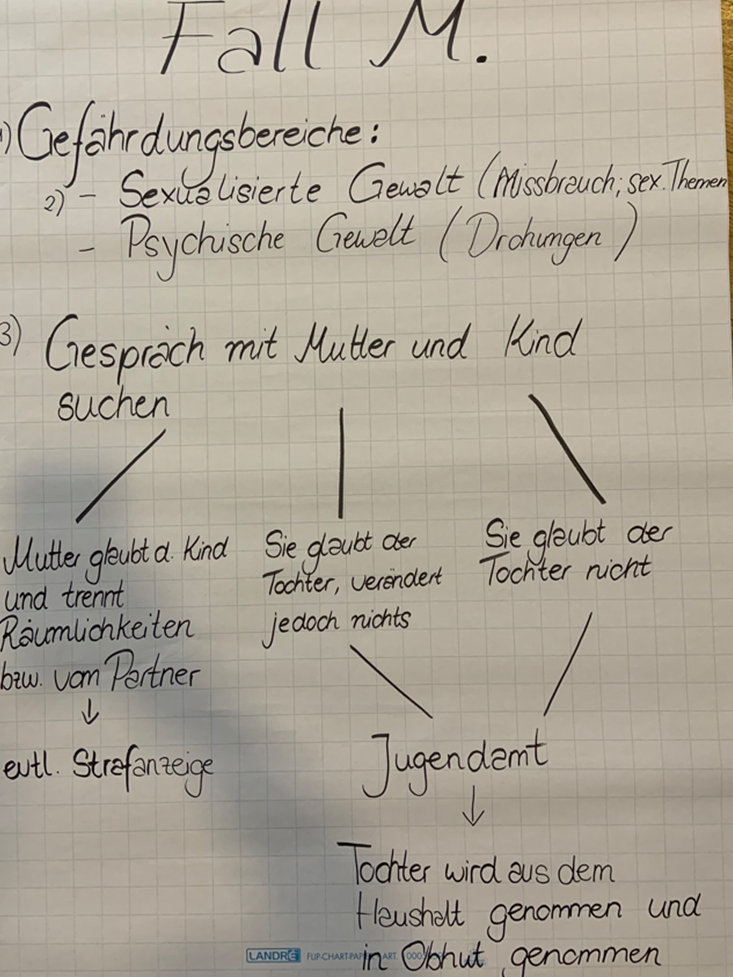 Fall M.
1) Gefährdungsbereiche:
2) - Sexualisierte Gewalt (Missbrauch; sex. Themen
- Psychische Gewalt (Drohungen)
3) Gespräch mit Mutter und Kind
suchen
Mutter glaubt d. Kind
und trennt
Räumlichkeiten
bzw. vom Partner
↓
evtl. Strafanzeige
Sie glaubt der
Tochter, verändert
jedoch nichts
Sie glaubt der
Tochter nicht
Jugendamt
↓
Tochter wird aus dem
Haushalt genommen und
in Obhut genommen
LANDRÉ FLIP-CHART-PAP ART.